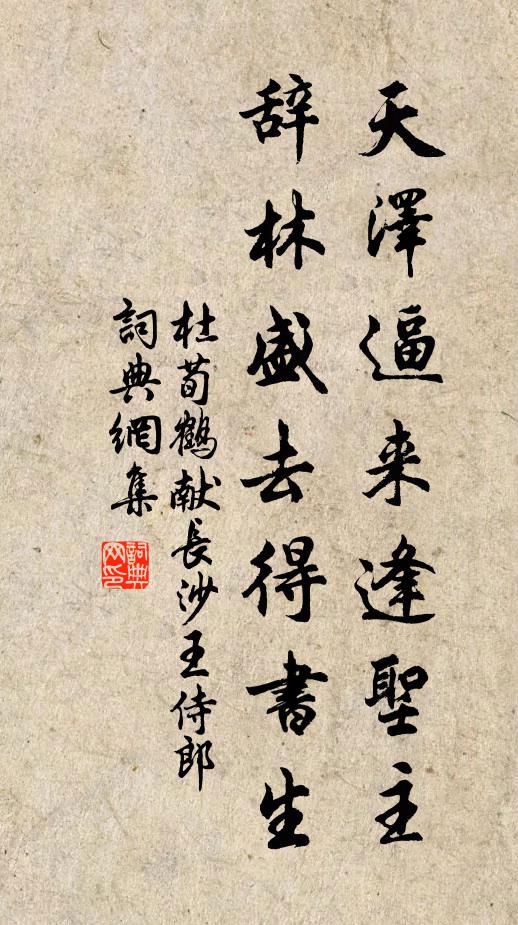 天澤逼来逢聖主
辞林盛去得書生
杜荀鶴献長沙王侍郎
詞典網集
詞典网印